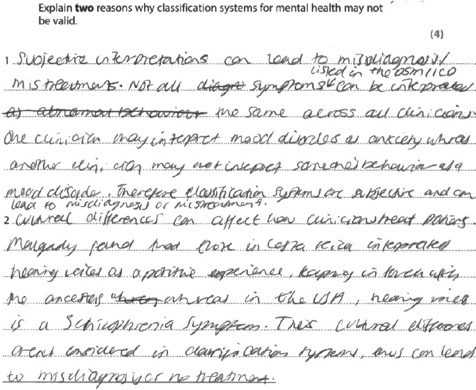 Explain two reasons why classification systems for mental health may not
be valid.
(4)
1 Subjective interpretations can lead to misdiagnosis/
listed in the DSM/ICD
mistreatments. Not all symptoms can be interpreted
as abnormal behaviour the same across all clinicians
One clinician may interpret mood disorder as anxiety whereas
another clinician may not interpret someone's behaviour as a
mood disorder. Therefore classification systems are subjective and can
lead to misdiagnosis or mistreatment.
2 Cultural differences can affect how clinicians treat patients.
Malgady found that those in Costa Rica interpreted
hearing voices as a positive experience, keeping in touch with
the ancestors whereas in the USA, hearing voices
is a Schizophrenia symptom. Thus cultural differences
arent considered in classification systems, thus can lead
to misdiagnosis or no treatment.